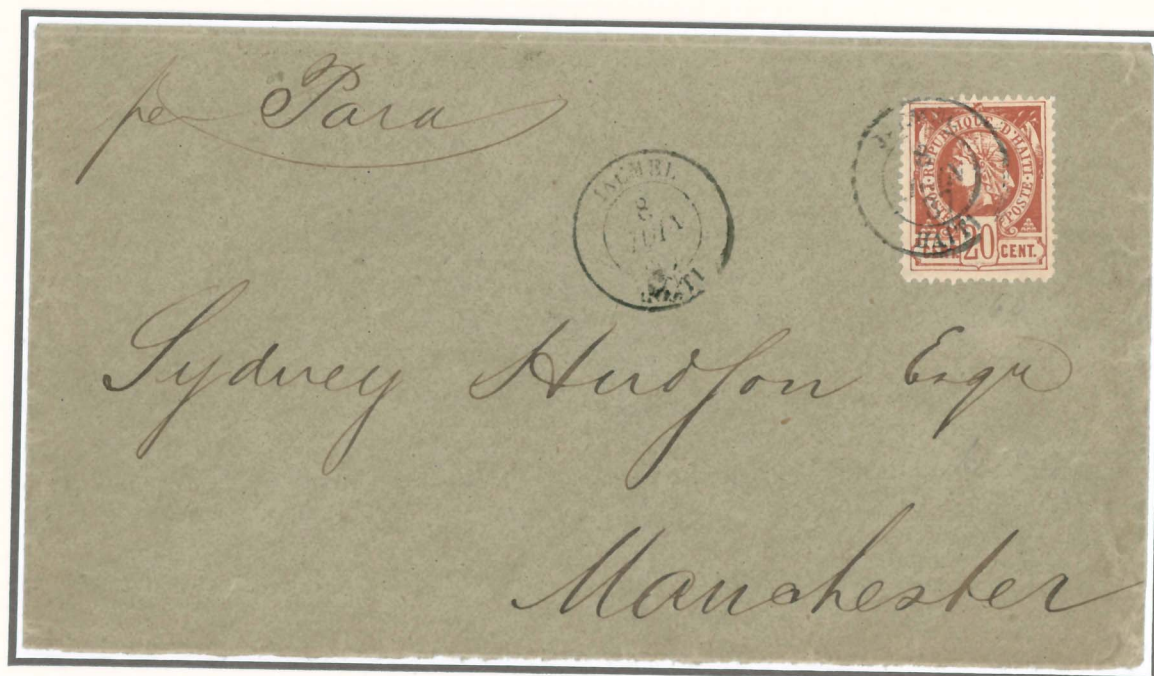 per Para
JACMEL
8
JUIN
HAÏTI
REPUBLIQUE D'HAITI
POSTE
POSTE
HAITI
20 CENT.
Sydney Hudson Esqr
Manchester